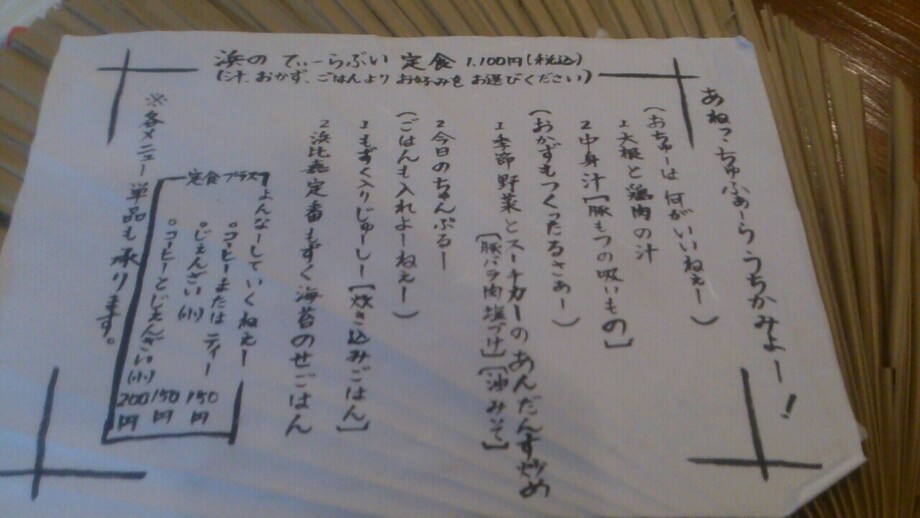 浜の てぃーらぶい 定食 1.100円(税込)
(汁、おかず、ごはんより お好みを お選びください)
あねっ、ちゅふぁーらうちかみよー!
(おちゅーは 何がいいねぇー)
1 大根と鶏肉の汁
2 中身汁[豚もつの吸いもの]
(おかずもつくったるさぁー)
1 季節野菜とスーチカーのあんだんす炒め
[豚バラ肉塩づけ][油みそ]
2 今日のちゃんぷるー
(ごはんも入れよーねぇー)
1 もずく入りじゅーしー[炊き込みごはん]
2 浜比嘉定番もずく海苔のせごはん
定食プラス
よんなーしていくねぇー
。コーヒーまたはティー 150円
。じぇんざい(小) 150円
。コーヒーとじぇんざい(小) 200円
※各メニュー単品も承ります。